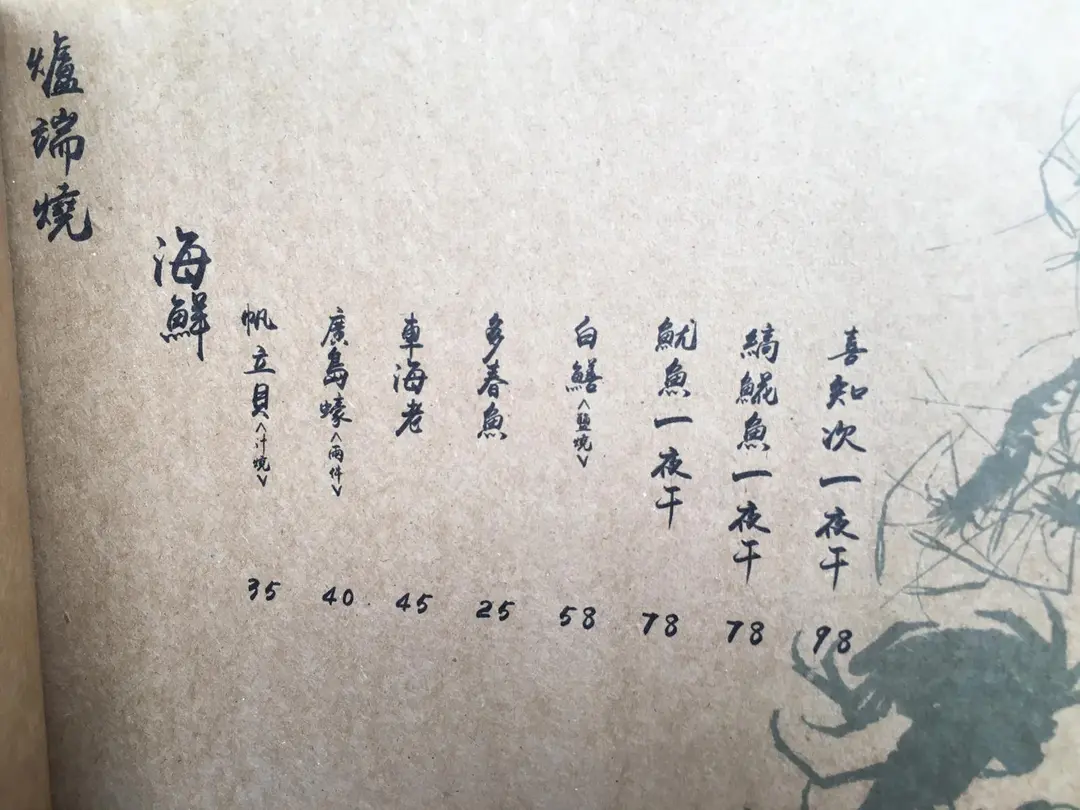 爐端燒
海鮮
帆立貝<汁燒> 35
廣島蠔<兩件> 40
車海老 45
多春魚 25
白鱔<鹽燒> 58
魷魚一夜干 78
縞𩸽魚一夜干 78
喜知次一夜干 98